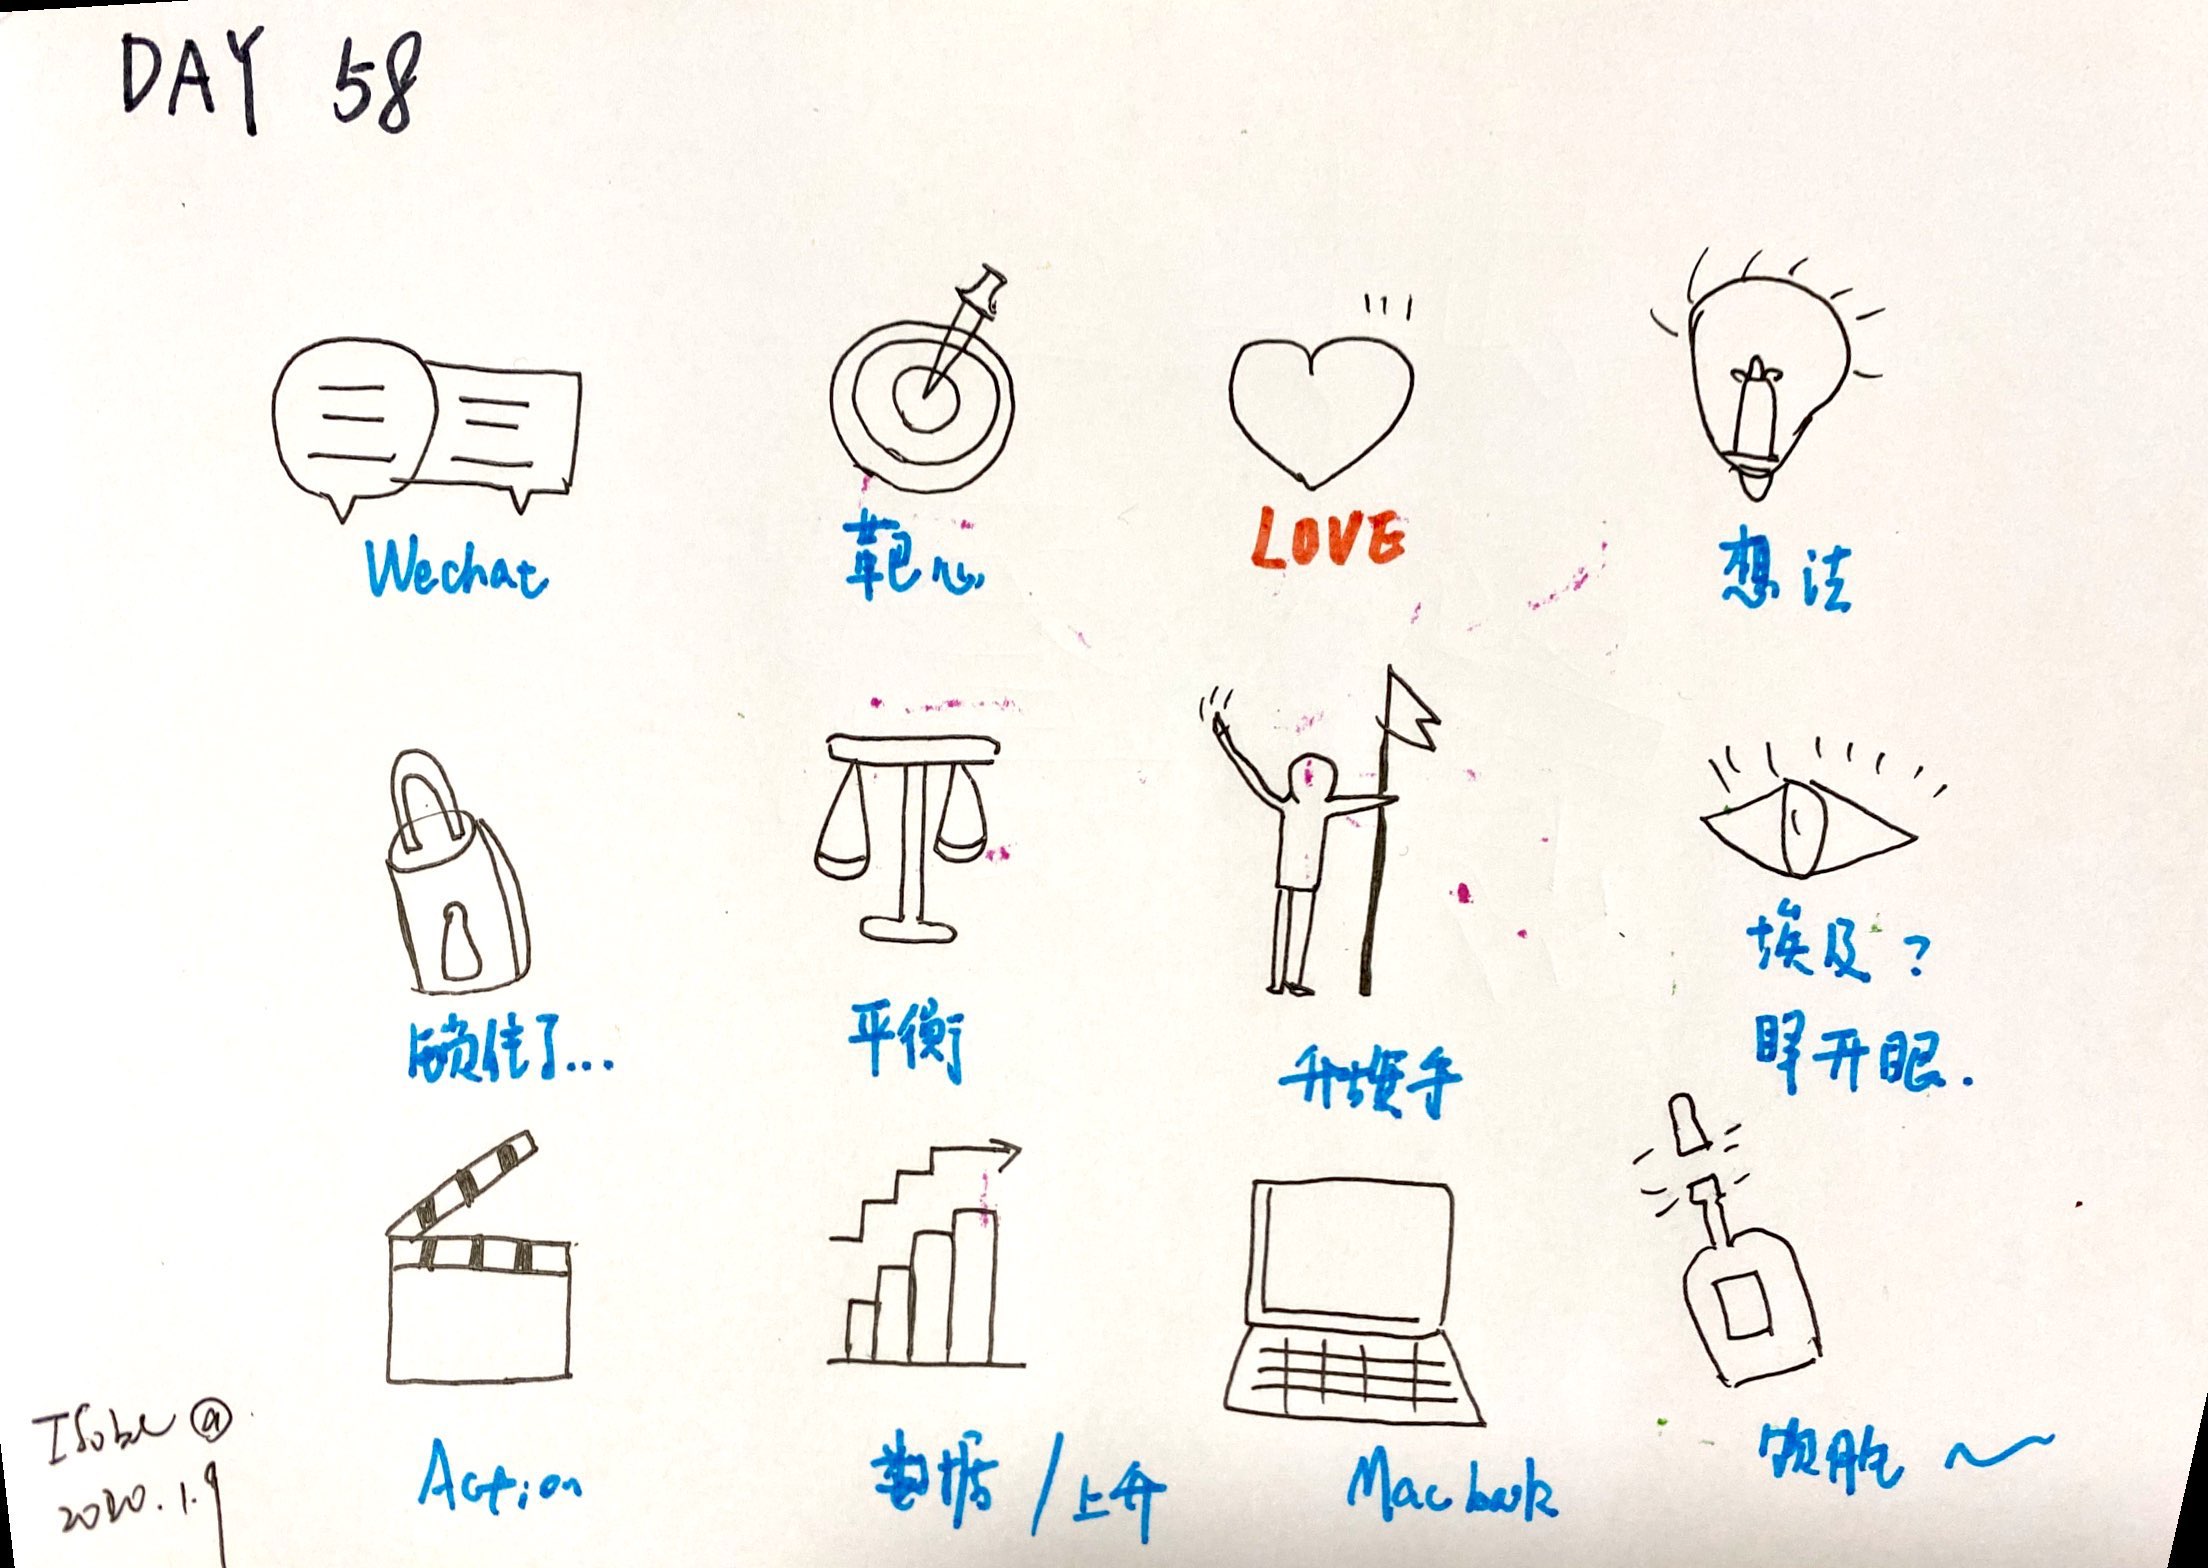 DAY 58
Wechat
靶心
LOVE
想法
锁住了...
平衡
升旗手
埃及?
睁开眼.
Action
数据/上升
Macbook
2020.1.9